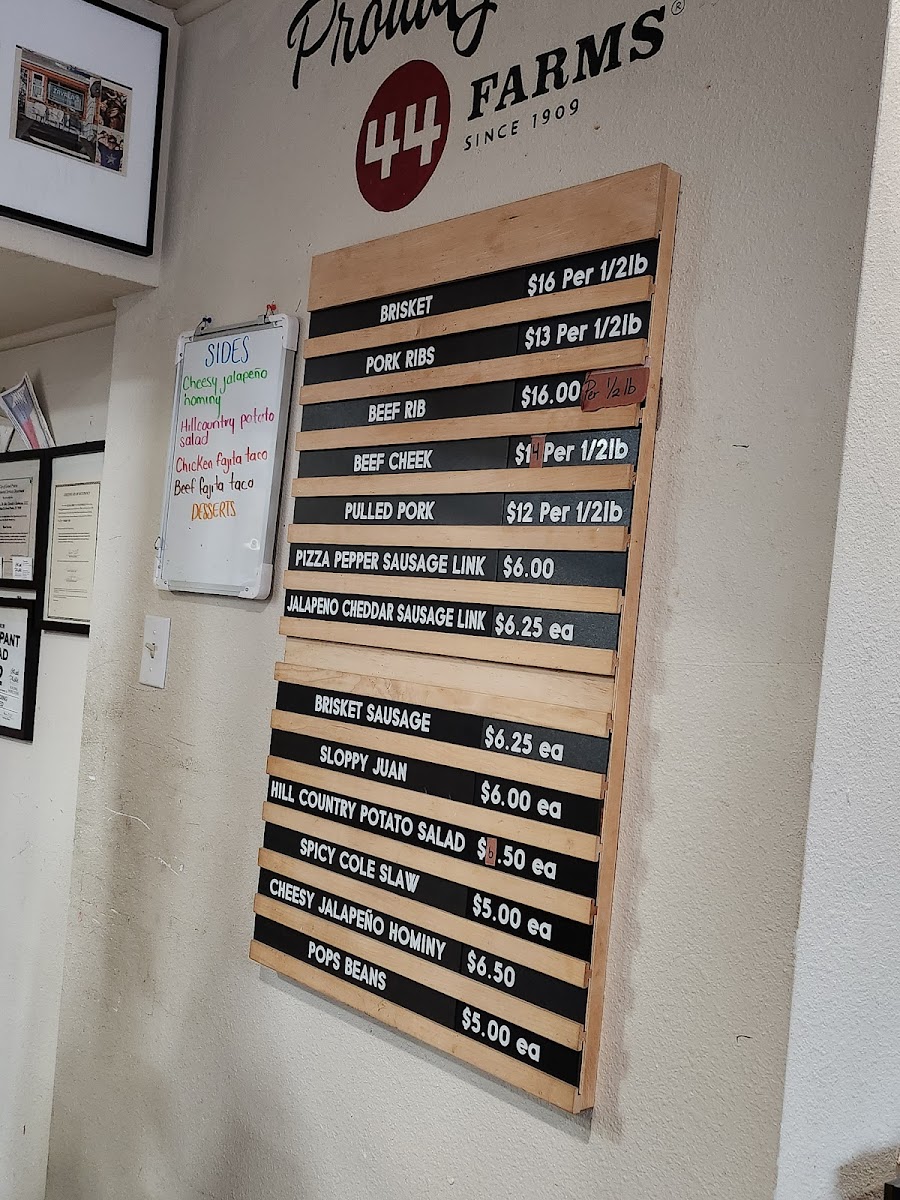 Proudly
44 FARMS®
SINCE 1909
BRISKET $16 Per 1/2lb
PORK RIBS $13 Per 1/2lb
BEEF RIB $16.00 Per 1/2 lb
BEEF CHEEK $14 Per 1/2lb
PULLED PORK $12 Per 1/2lb
PIZZA PEPPER SAUSAGE LINK $6.00
JALAPENO CHEDDAR SAUSAGE LINK $6.25 ea
BRISKET SAUSAGE $6.25 ea
SLOPPY JUAN $6.00 ea
HILL COUNTRY POTATO SALAD $6.50 ea
SPICY COLE SLAW $5.00 ea
CHEESY JALAPEÑO HOMINY $6.50
POPS BEANS $5.00 ea
SIDES
Cheesy jalapeño
hominy
Hillcountry potato
salad
Chicken fajita taco
Beef fajita taco
DESSERTS